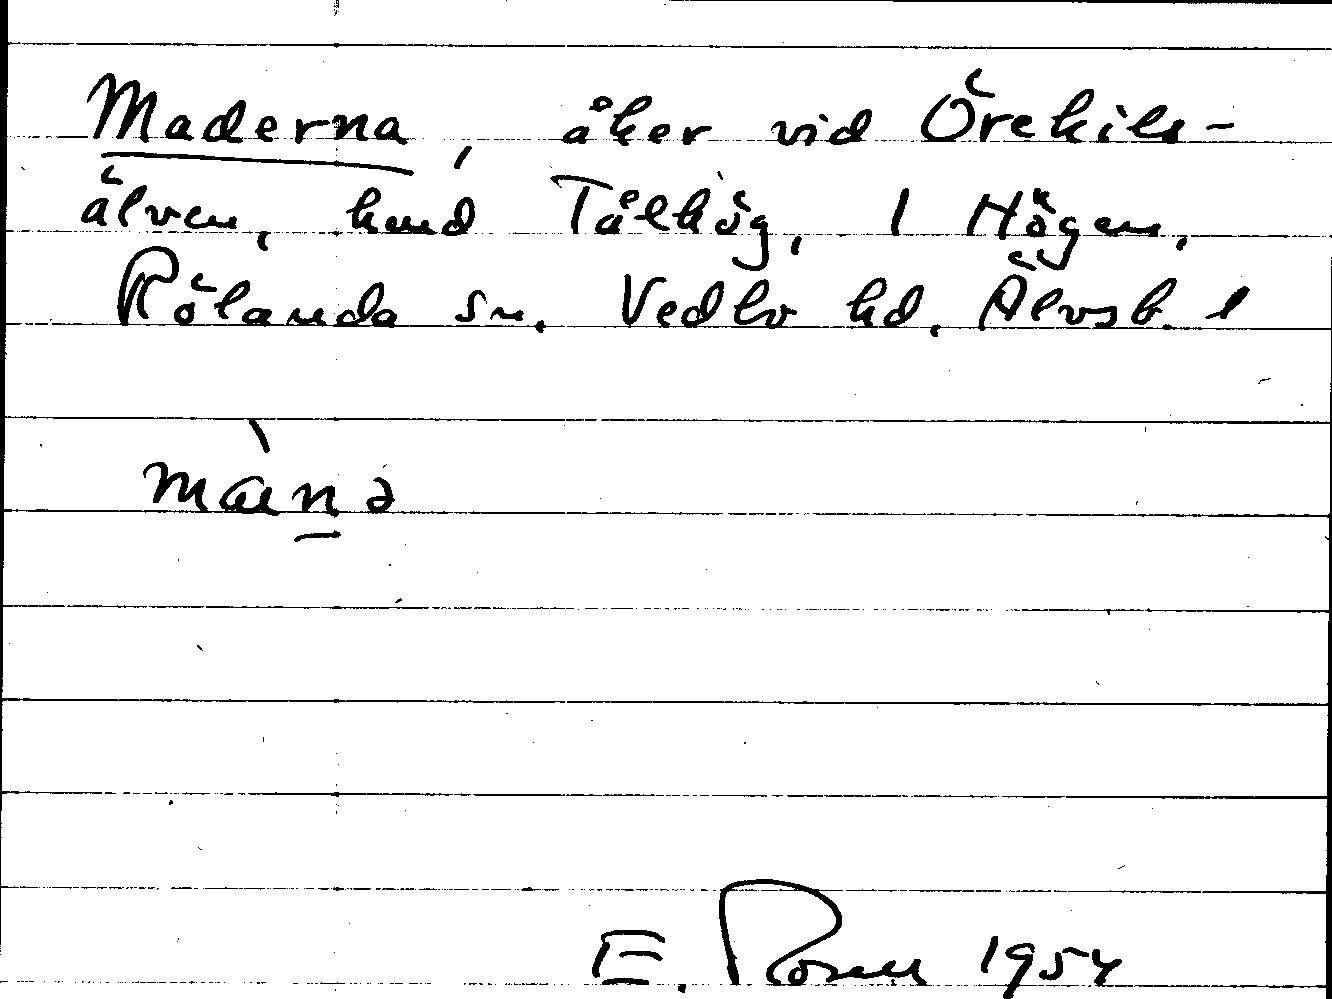 Maderna, åker vid Örekils-
älven, hmd Tålhög, 1 Högen,
Rölanda sn. Vedbo hd. Älvsb. l
mànə
E. Rosell 1954